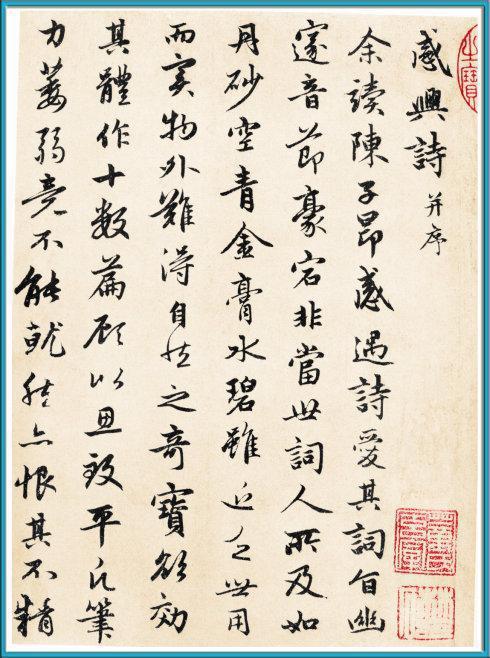 感興詩 并序
余讀陳子昂感遇詩愛其詞旨幽
邃音節豪宕非當世詞人所及如
丹砂空青金膏水碧雖近乏世用
而實物外難得自然之奇寶欲効
其體作十數篇顧以思致平凡筆
力萎弱竟不能就然亦恨其不精